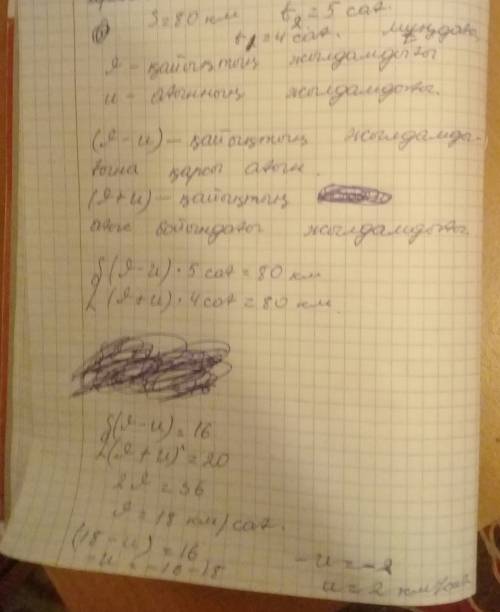 S=80 км t₂=5 сағ.
t₁=4 сағ. мұндағы
ϑ – қайықтың жылдамдығы
u – ағынның жылдамдығы.
(ϑ-u) – қайықтың жылдамды-
ғына қарсы ағын.
(ϑ+u) – қайықтың
ағын бойындағы жылдамдығы.
{(ϑ-u)·5 сағ=80 км
{(ϑ+u)·4 сағ=80 км.
{(ϑ-u)=16
{(ϑ+u)=20
2ϑ=36
ϑ=18 км/сағ.
(18-u)=16 -u=-2
-u=16-18 u=2 км/сағ